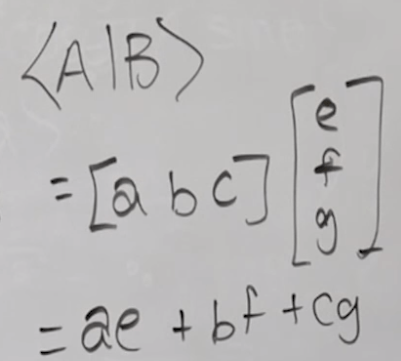 ⟨A|B⟩
= [a b c] [e
f
g]
= ae + bf + cg